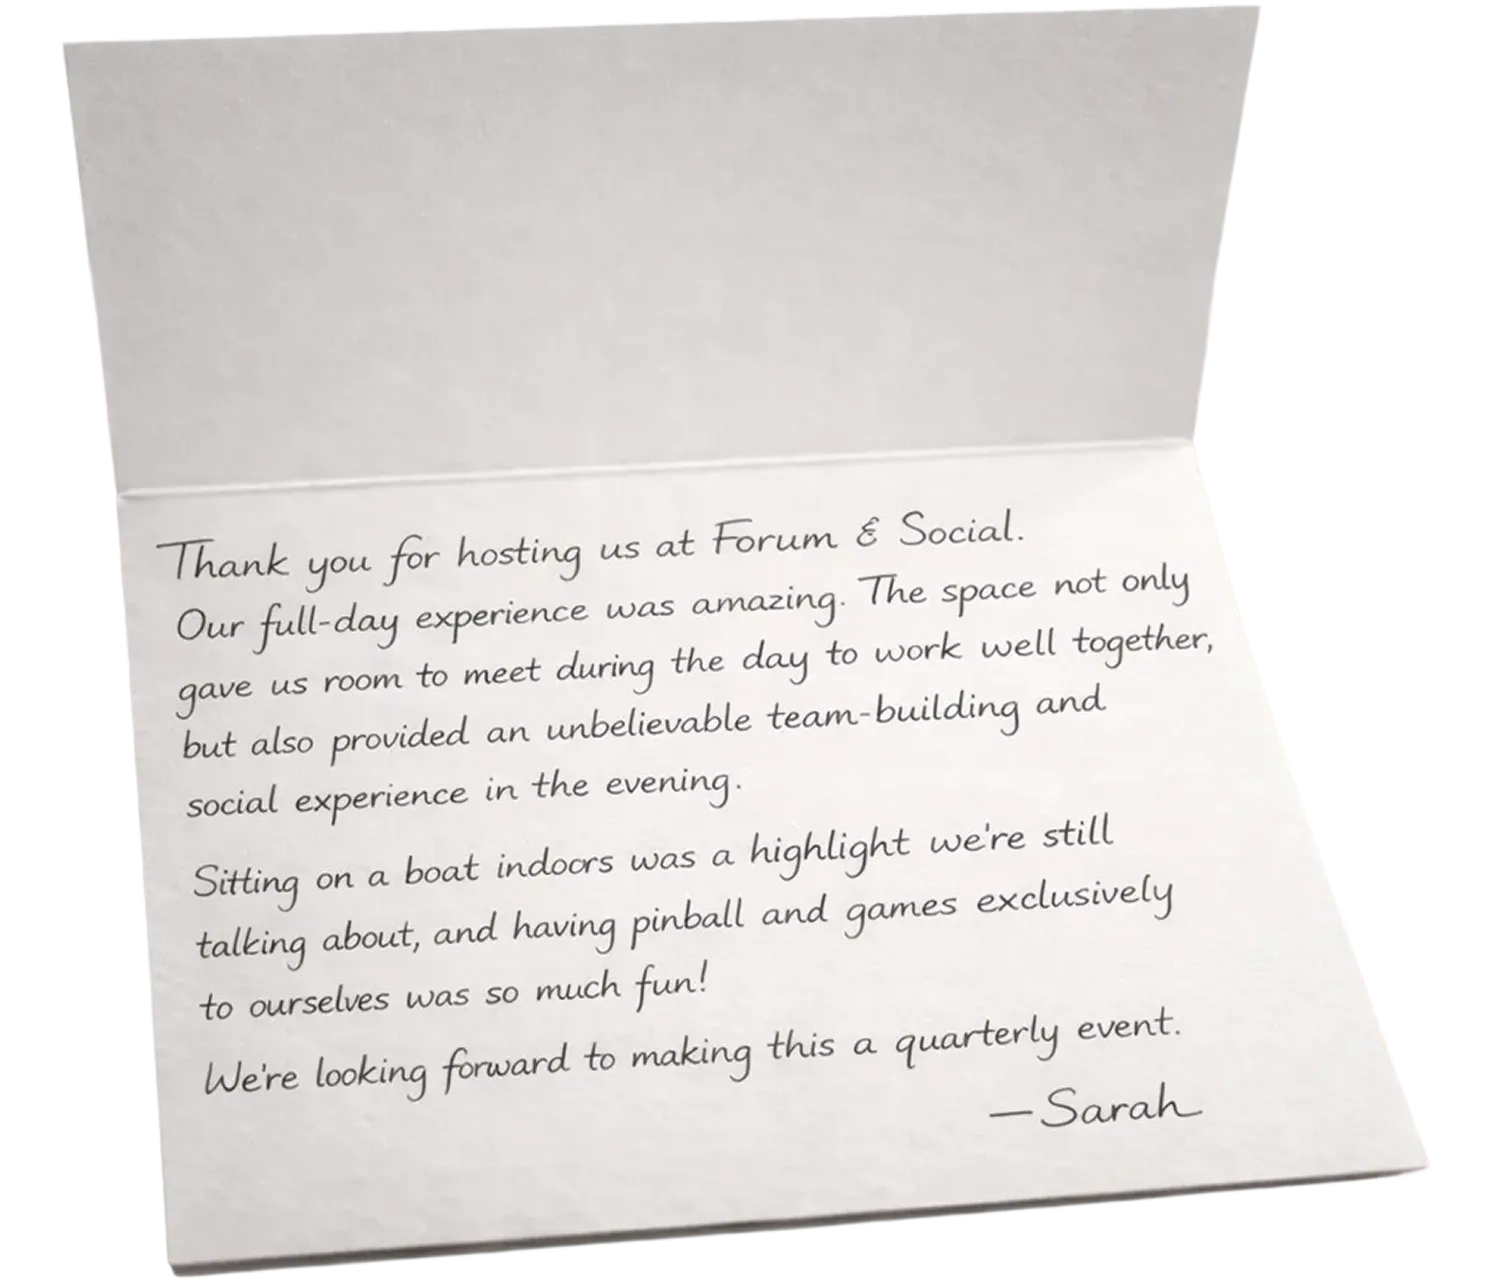 Thank you for hosting us at Forum & Social.
Our full-day experience was amazing. The space not only
gave us room to meet during the day to work well together,
but also provided an unbelievable team-building and
social experience in the evening.
Sitting on a boat indoors was a highlight we're still
talking about, and having pinball and games exclusively
to ourselves was so much fun!
We're looking forward to making this a quarterly event.
—Sarah